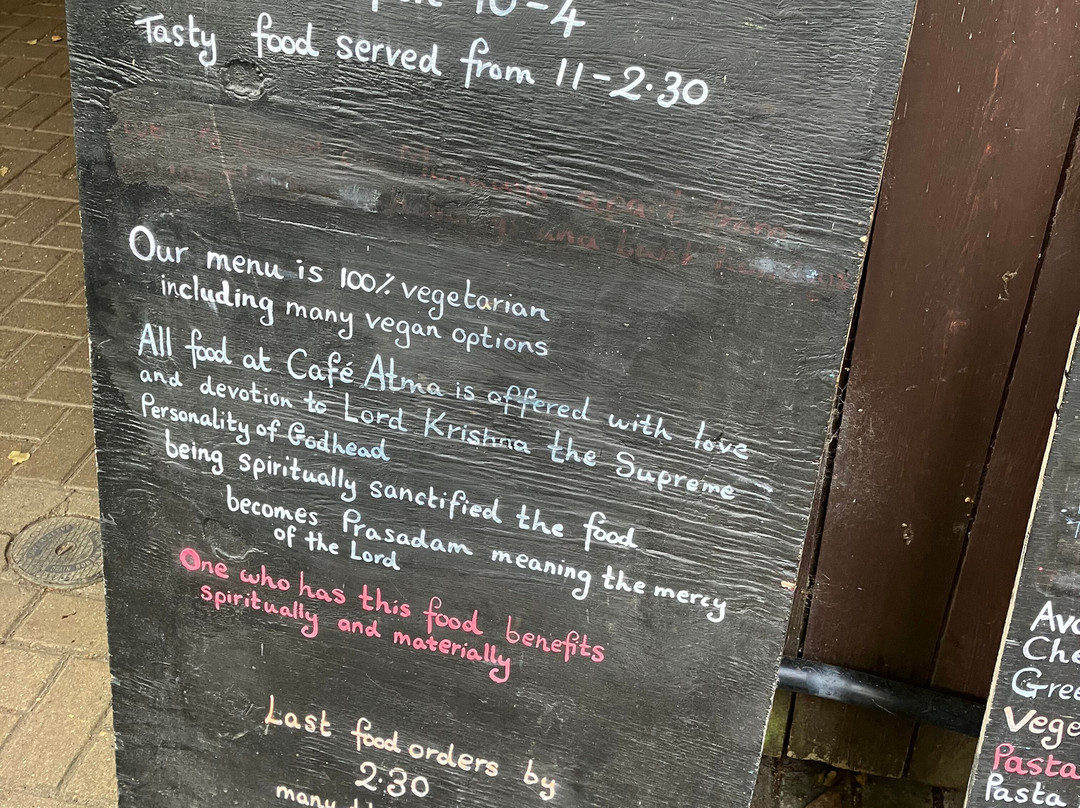 10-4
Tasty food served from 11-2.30
Our menu is 100% vegetarian
including many vegan options
All food at Café Atma is offered with love
and devotion to Lord Krishna the Supreme
Personality of Godhead
being spiritually sanctified the food
becomes Prasadam meaning the mercy
of the Lord
One who has this food benefits
spiritually and materially
Last food orders by
2.30
many
Pasta
Pasta